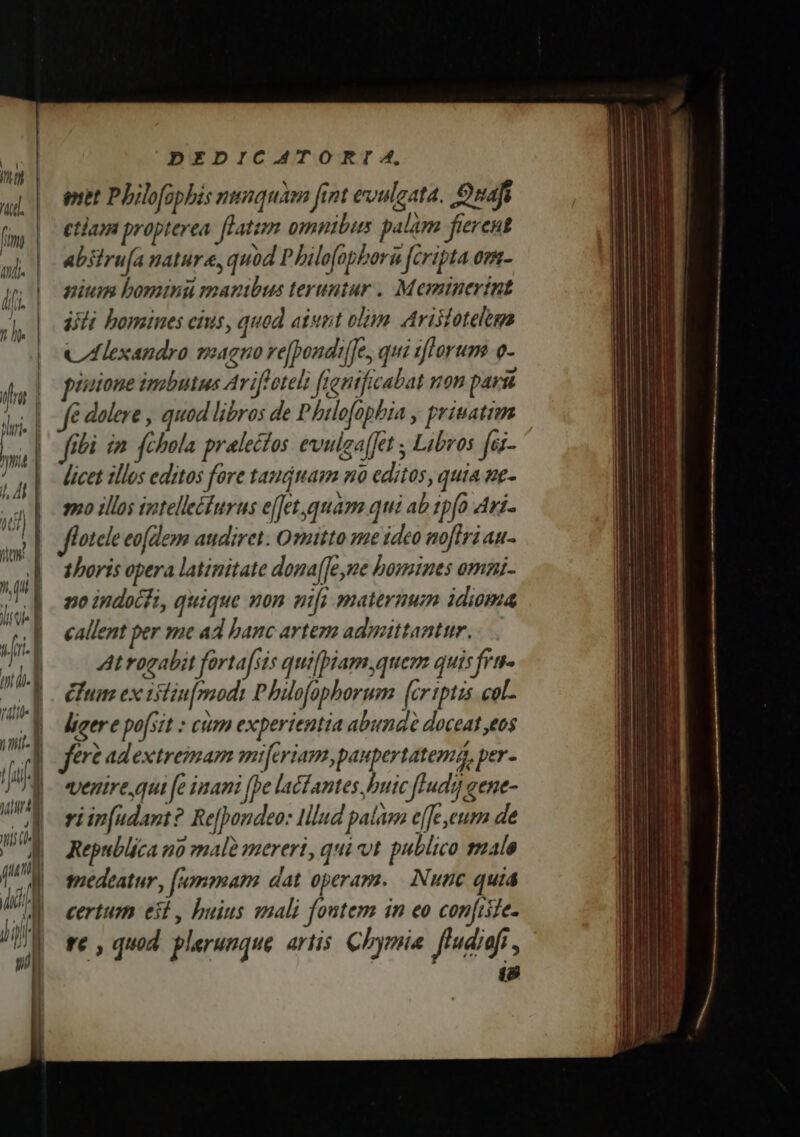 DEDICATORIA.
met Philoſophis nunquàm ſint evulgata. Quaſi
etiam propterea ſtatim omnibus palàm fierent
abſtruſa naturæ, quòd Philoſophorũ ſcripta om-
nium hominũ manibus teruntur. Meminerint
iſti homines eius, quod aiunt olim Ariſtotelem
Alexandro magno reſpondiſſe, qui iſtorum o-
pinione imbutus Ariſtoteli ſignificabat non parũ
ſe dolere, quod libros de Philoſophia, priuatim
ſibi in ſchola prælectos evulgaſſet; Libros ſci-
licet illos editos fore tanquam nõ editos, quia ne-
mo illos intellecturus eſſet, quàm qui ab ipſo Ari-
ſtotele eoſdem audiret. Omitto me ideo noſtri au-
thoris opera latinitate donaſſe, ne homines omni-
no indocti, quique non niſi maternum idioma
callent per me ad hanc artem admittantur.
At rogabit fortaſsis quiſpiam, quem quis fru-
ctum ex iſtiuſmodi Philoſophorum ſcriptis col-
ligere poſsit : cùm experientia abundè doceat, eos
ferè ad extremam miſeriam, paupertatemq́, per-
venire, qui ſe inani ſpe lactantes, huic ſtudij gene-
ri inſudant? Reſpondeo: Illud palàm eſſe, eum de
Republica nõ malè mereri, qui vt publico malo
medeatur, ſummam dat operam. Nunc quia
certum eſt, huius mali fontem in eo conſiſte-
re, quod plerunque artis Chymiæ ſtudioſi,
in